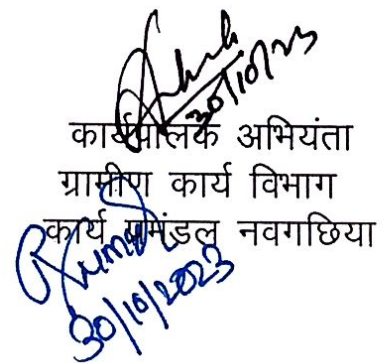 30/10/23
कार्यपालक अभियंता
ग्रामीण कार्य विभाग
कार्य प्रमंडल नवगछिया
30/10/2023